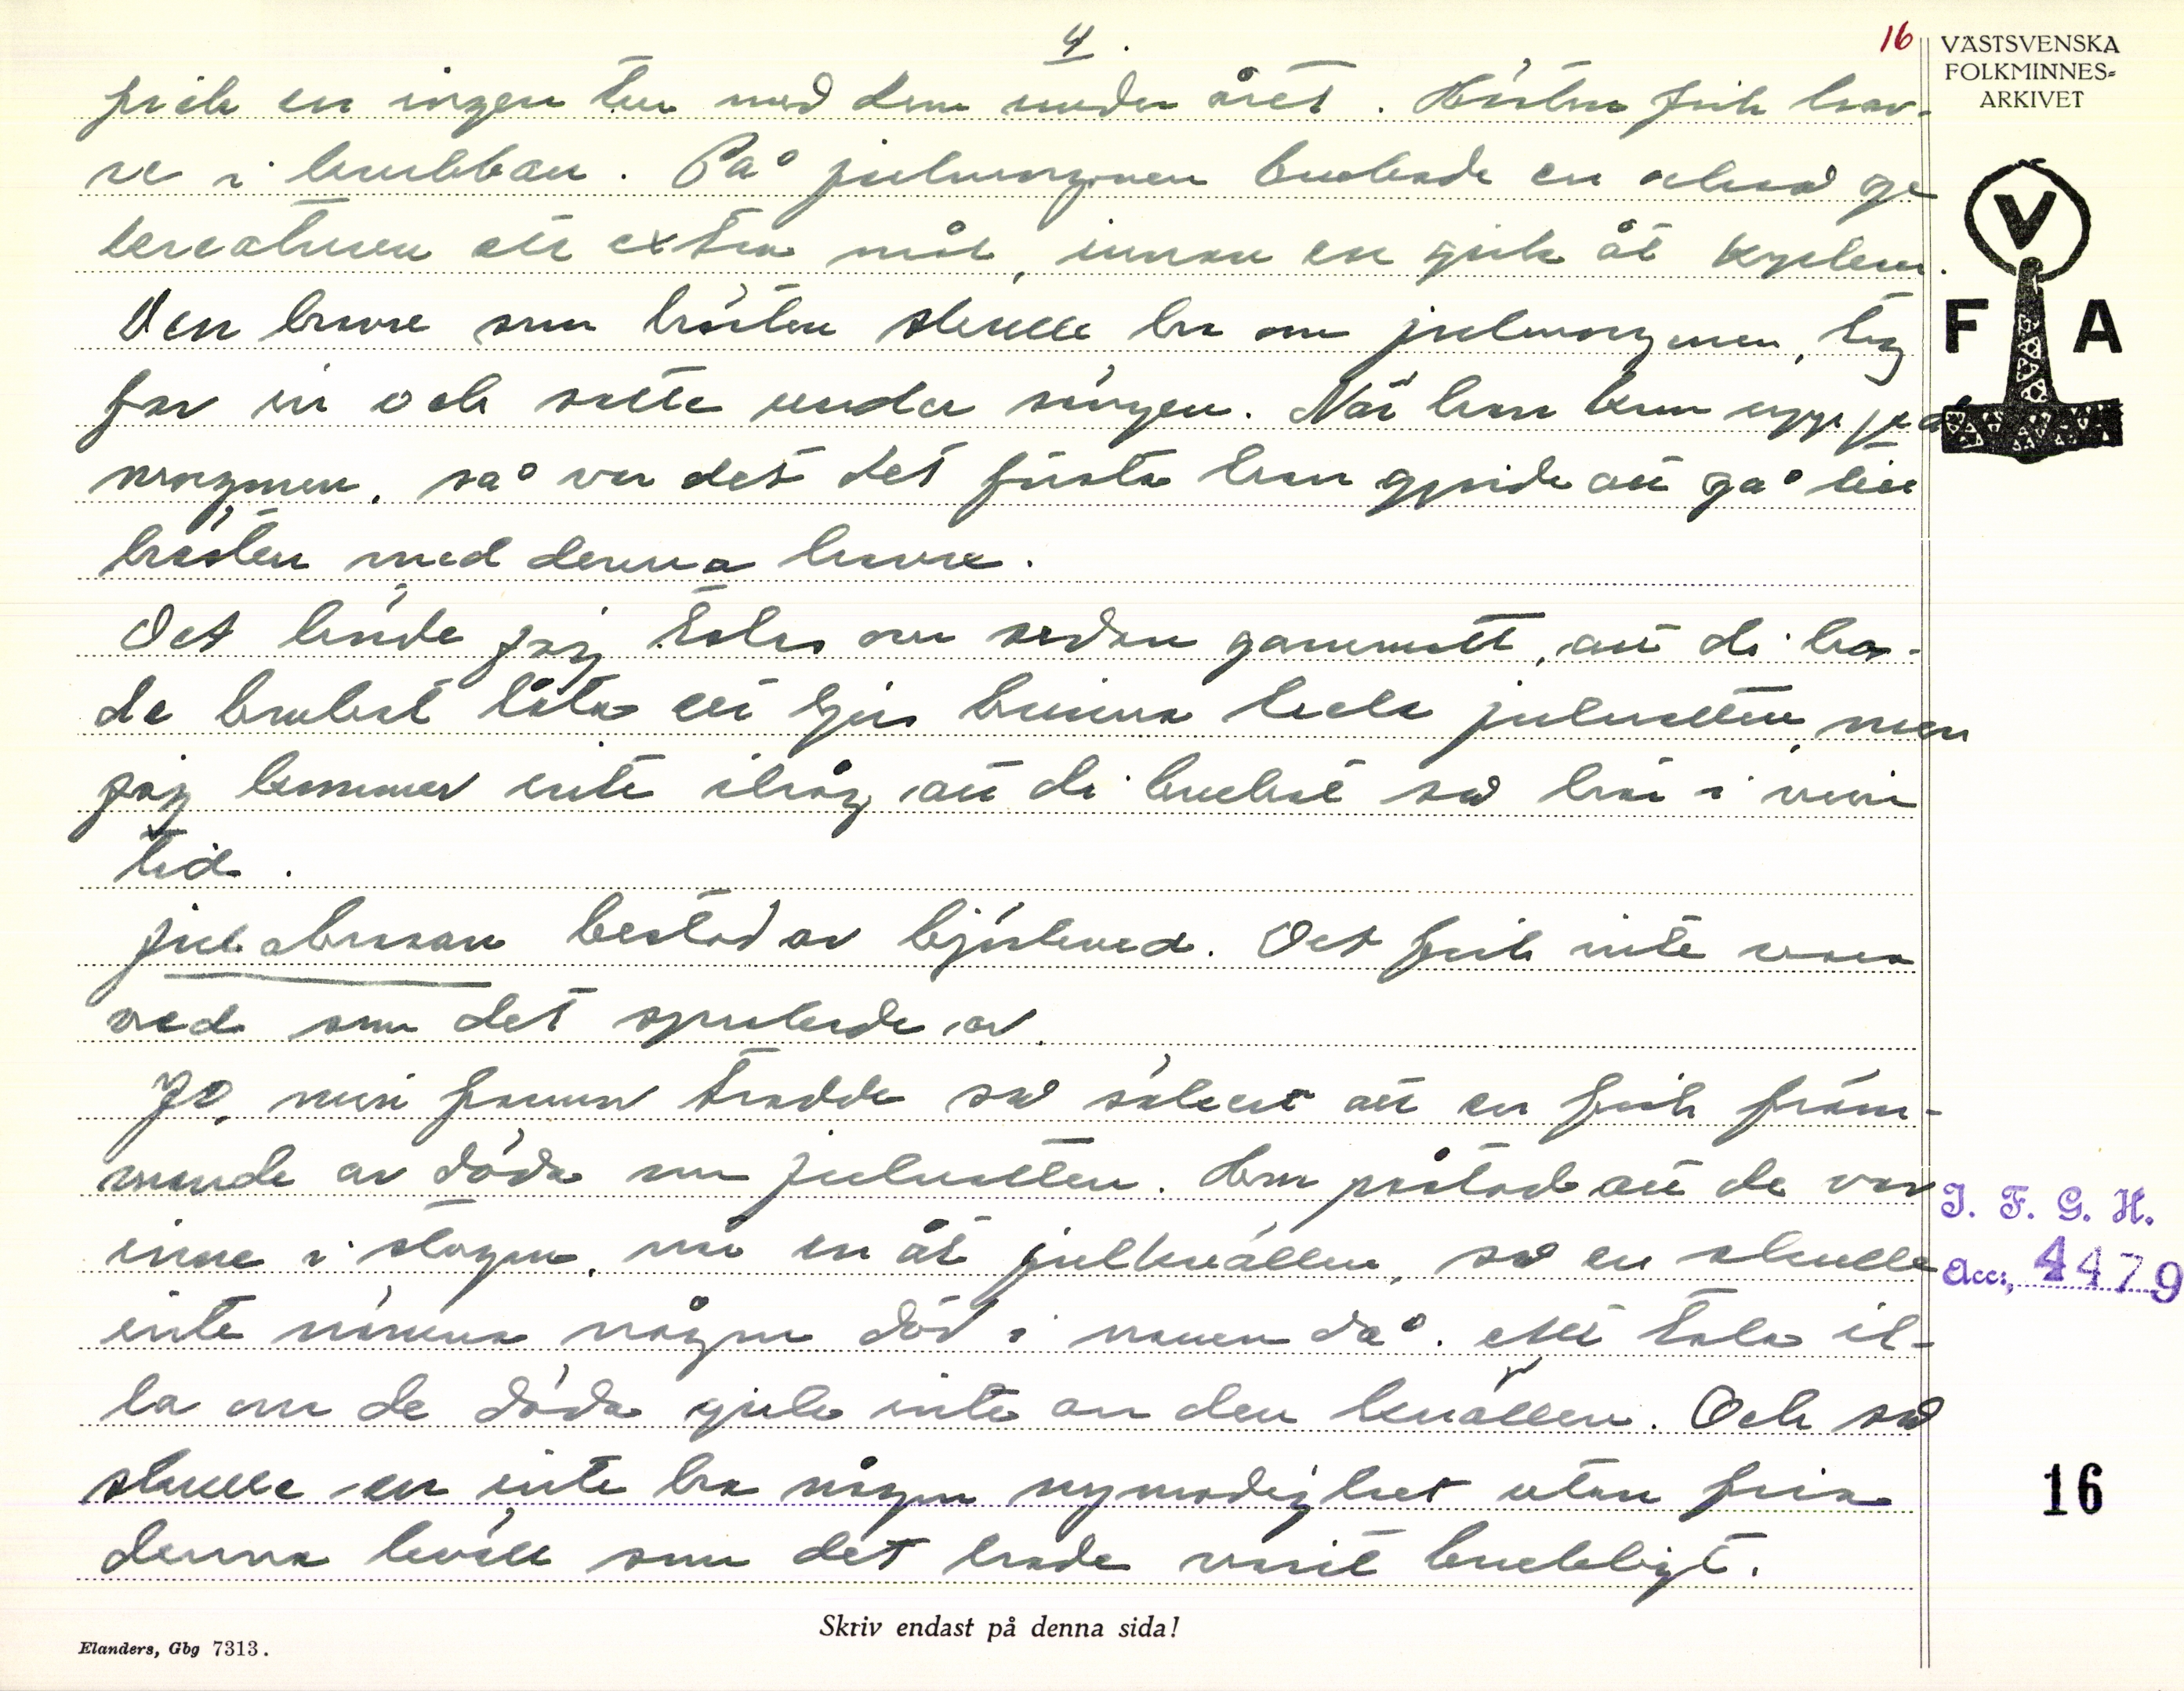 4.
16
VÄSTSVENSKA
FOLKMINNES-
ARKIVET
fick en ingen tur med dem under året. Hästen fick hav-
re i krubban. På julmorgonen brukade en också ge
kreaturen ett extra mål, innan en gick åt kyrkan.
Den havre som hästen skulle ha om julmorgonen, tog
far in och satte under sängen. När han kom upp på
morgonen, så var det det första han gjorde att gå till
hästen med denna havre.
Det hörde jag talas om sedan gammalt, att di ha-
de brukat låta ett ljus brinna hela julnatten, men
jag kommer inte ihåg att di brukat så här i min
tid.
Julabrasan bestod av björkved. Det fick inte vara
ved som det sprakade av.
Jo, min farmor trodde så säkert att en fick främ-
mande av döda om julnatten. Hon påstod att de var
inne i stugan, när en åt julkvällen, så en skulle
inte nämna någon död i namn då. Att tala il-
la om de döda gick inte an den kvällen. Och så
skulle en inte ha någon nymodighet utan fira
denna kväll som det hade varit brukligt.
V
F A
I. F. G. H.
Acc:, 4479
16
Skriv endast på denna sida!
Elanders, Gbg 7313.